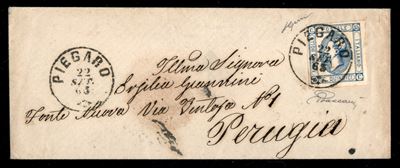 PIEGARO
22
SET.
63
PIEGARO
22
SET.
63
Illma Signora
Sofilia Giannini
Fonte Nuova Via Ventosa N° 1
Perugia